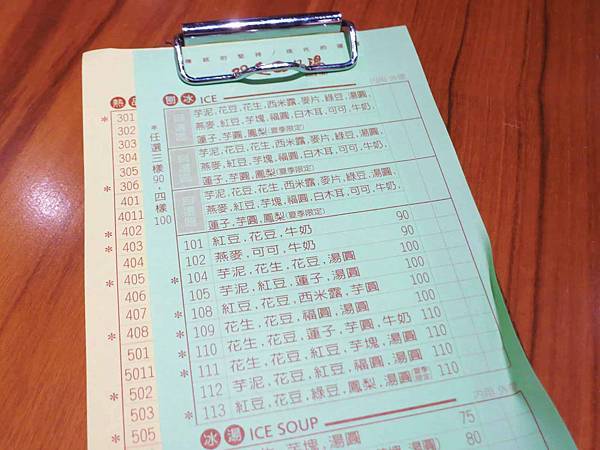 刨冰 ICE
芋泥,花豆,花生,西米露,麥片,綠豆,湯圓,
燕麥,紅豆,芋塊,福圓,白木耳,可可,牛奶,
蓮子,芋圓,鳳梨(夏季限定)
芋泥,花豆,花生,西米露,麥片,綠豆,湯圓,
燕麥,紅豆,芋塊,福圓,白木耳,可可,牛奶,
蓮子,芋圓,鳳梨(夏季限定)
芋泥,花豆,花生,西米露,麥片,綠豆,湯圓,
燕麥,紅豆,芋塊,福圓,白木耳,可可,牛奶,
蓮子,芋圓,鳳梨(夏季限定)
*任選三樣90,四樣100
101 紅豆,花豆,牛奶 90
102 燕麥,可可,牛奶 90
* 104 芋泥,花生,花豆,湯圓 100
105 芋泥,紅豆,蓮子,湯圓 100
* 108 紅豆,花豆,西米露,芋圓 100
* 109 花生,花豆,福圓,湯圓 100
* 110 花生,花豆,蓮子,芋圓,牛奶 110
* 111 花生,花豆,紅豆,芋塊,湯圓 110
112 芋泥,花豆,紅豆,福圓,湯圓 110
* 113 紅豆,花豆,綠豆,鳳梨,湯圓 夏季限定 110
內用 外帶
冰湯 ICE SOUP
芋塊,湯圓 75
80
熱
* 301
302
303
304
305
* 306
401
4011
* 402
* 403
404
405
407
* 408
501
5011
* 502
503
* 505